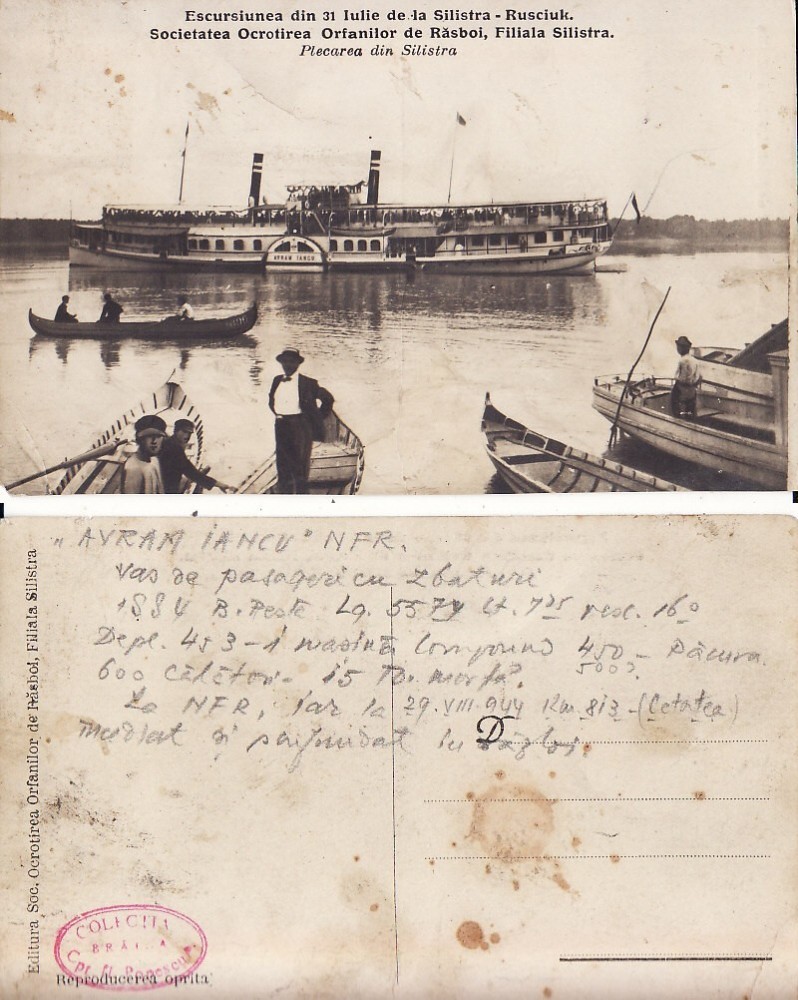 Escursiunea din 31 Iulie de la Silistra - Rusciuk.
Societatea Ocrotirea Orfanilor de Răsboi, Filiala Silistra.
Plecarea din Silistra
AVRAM IANCU
„AVRAM IANCU" NFR.
Vas de pasageri cu zbaturi
1884 B. Pesta Lg. 55 Lt. 7
Depl. 453 - 1 mașină Compound 450 - Păcura.
600 Călători - 15 To. marfă. 500?
La NFR, iar la 29.VIII.944 Km. 813 - (Cetatea)
incendiat și scufundat
D
Editura Soc. Ocrotirea Orfanilor de Răsboi, Filiala Silistra
COLECȚIA
BRĂILA
Cpt. Popescu
Reproducerea oprita